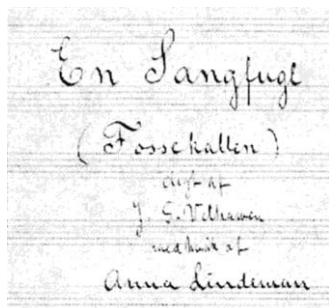 En Sangfugl
(Fossekallen)
digt af
J. S. Velhaven
med musik af
Anna Lindeman